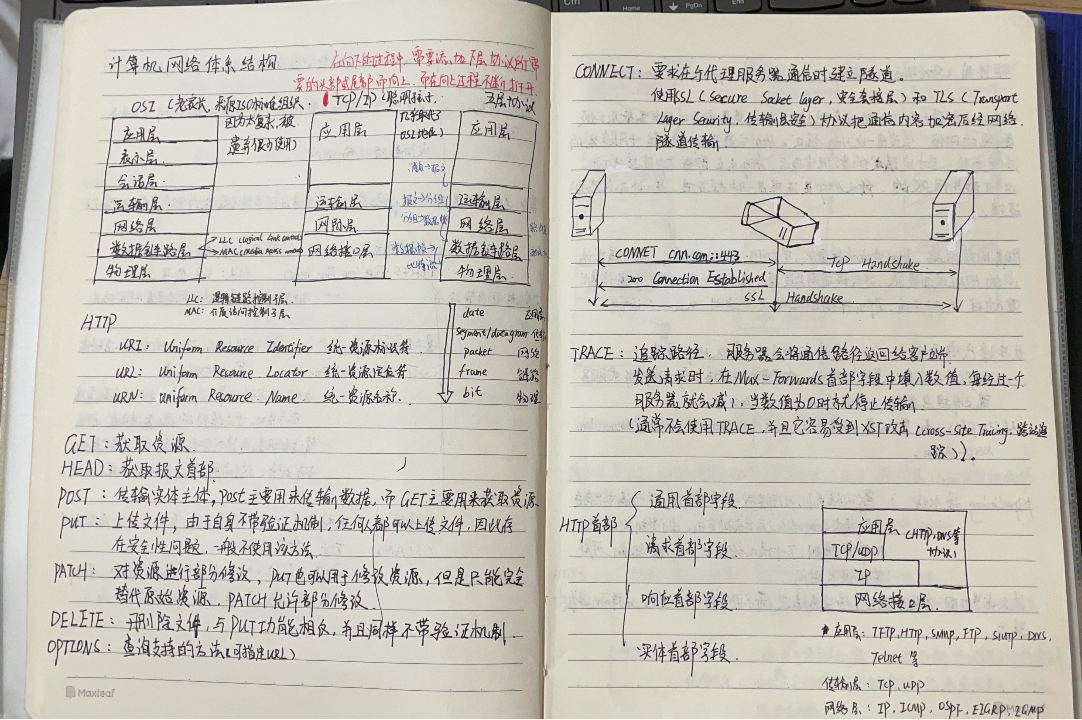 计算机网络体系结构
在向下的过程中,需要添加下层协议所需
要的头部或尾部,而向上
OSI(
TCP/IP(
五层协议
应用层
表示层
会话层
运输层
网络层
数据链路层
物理层
因为太复杂,被
应用层
运输层
网际层
网络接口层
应用层
运输层
网络层
数据链路层
物理层
LLC (Logical Link Control
MAC (Media Access
LLC: 逻辑链路控制子层
MAC: 介质访问控制子层
date 应用层
segment/datagram 传输
packet 网络
frame 链路
bit 物理
HTTP
URI: Uniform Resource Identifier 统一资源标识符
URL: Uniform Resource Locator 统一资源定位符
URN: Uniform Resource Name 统一资源名称
GET: 获取资源.
HEAD: 获取报文首部
POST: 传输实体主体, Post主要用来传输数据, 而GET主要用来获取资源
PUT: 上传文件, 由于自身不带验证机制, 任何人都可以上传文件, 因此存
在安全性问题, 一般不使用该方法.
PATCH: 对资源进行部分修改, PUT也可以用于修改资源, 但是只能完全
替代原始资源, PATCH允许部分修改
DELETE: 删除文件, 与PUT功能相反, 并且同样不带验证机制.
OPTIONS: 查询支持的方法(可指定URL)
Maxleaf
CONNECT: 要求在与代理服务器通信时建立隧道.
使用SSL (Secure Socket Layer, 安全套接层) 和 TLS (Transport
Layer Security, 传输层安全) 协议把通信内容加密后经网络
隧道传输
CONNET cnn.com::443
200 Connection Established
TCP Handshake
SSL Handshake
TRACE: 追踪路径. 服务器会将通信路径返回给客户端.
发送请求时, 在Max-Forwards首部字段中填入数值, 每经过一个
服务器就会减1, 当数值为0时就停止传输
(通常不会使用TRACE, 并且它容易受到XST攻击 (Cross-Site Tracing, 跨站追
踪)).
HTTP首部
通用首部字段.
请求首部字段.
响应首部字段.
实体首部字段.
应用层
(HTTP, DNS等
协议)
TCP/UDP
IP
网络接口层.
应用层: TFTP, HTTP, SNMP, FTP, SMTP, DNS,
Telnet 等
传输层: TCP, UDP
网络层: IP, ICMP, OSPF, EIGRP, IGMP